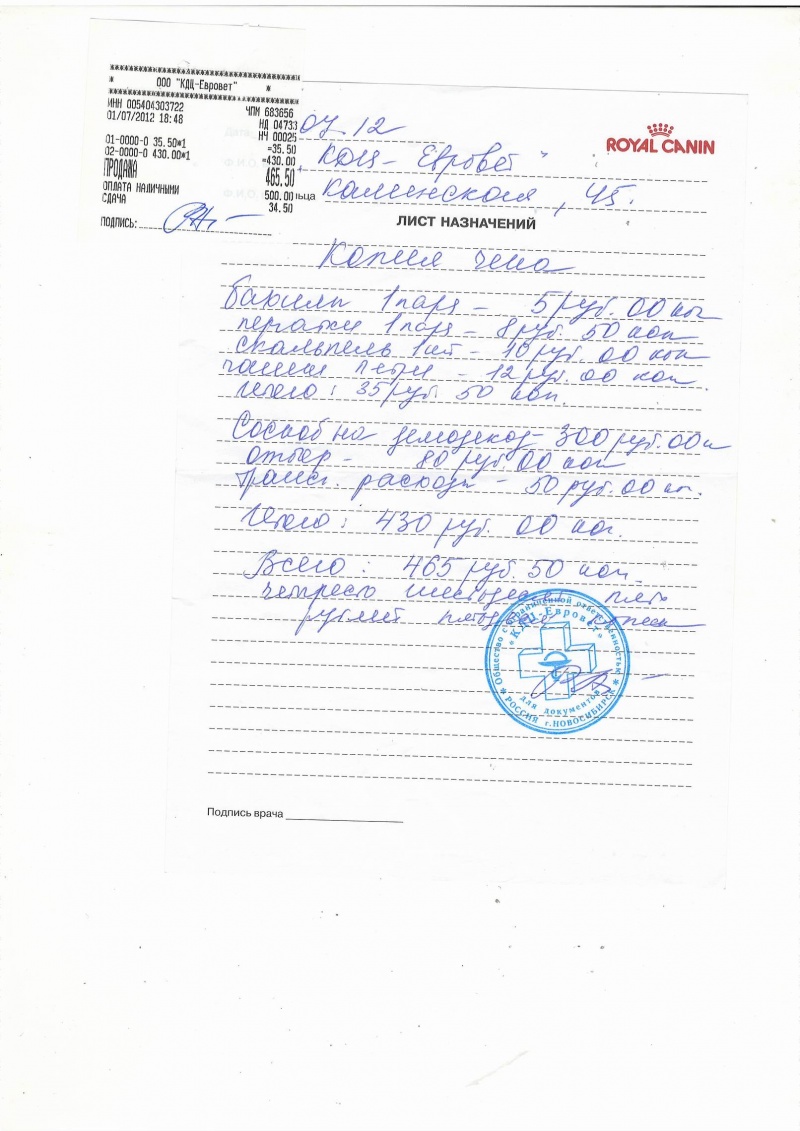 ********************************
* ООО "КДЦ-Евровет" *
********************************
ИНН 005404303722 ЧПМ 683656
01/07/2012 18:48 НД 04733
НЧ 00025
01-0000-0 35.50*1 =35.50
02-0000-0 430.00*1 =430.00
ПРОДАЖА 465.50
ОПЛАТА НАЛИЧНЫМИ 500.00
СДАЧА 34.50
ПОДПИСЬ:
07.12
КДЦ - Евровет
ьца Каменская, 45.
ROYAL CANIN
ЛИСТ НАЗНАЧЕНИЙ
Копия чека
бахилы 1 пара - 5 руб. 00 коп
перчатки 1 пара - 8 руб. 50 коп
скальпель 1 шт - 10 руб. 00 коп
чашка петри - 12 руб. 00 коп.
Итого: 35 руб 50 коп.
Соскоб на демодекоз - 300 руб. 00 к
отбор - 80 руб. 00 коп
трансп. расходы - 50 руб. 00 коп.
Итого: 430 руб. 00 коп.
Всего: 465 руб. 50 коп.
четыреста шестьдесят пять
рублей пятьдесят копеек
Общество с ограниченной ответственностью
«КДЦ-Евровет»
для документов
* РОССИЯ г.НОВОСИБИРСК *
Подпись врача